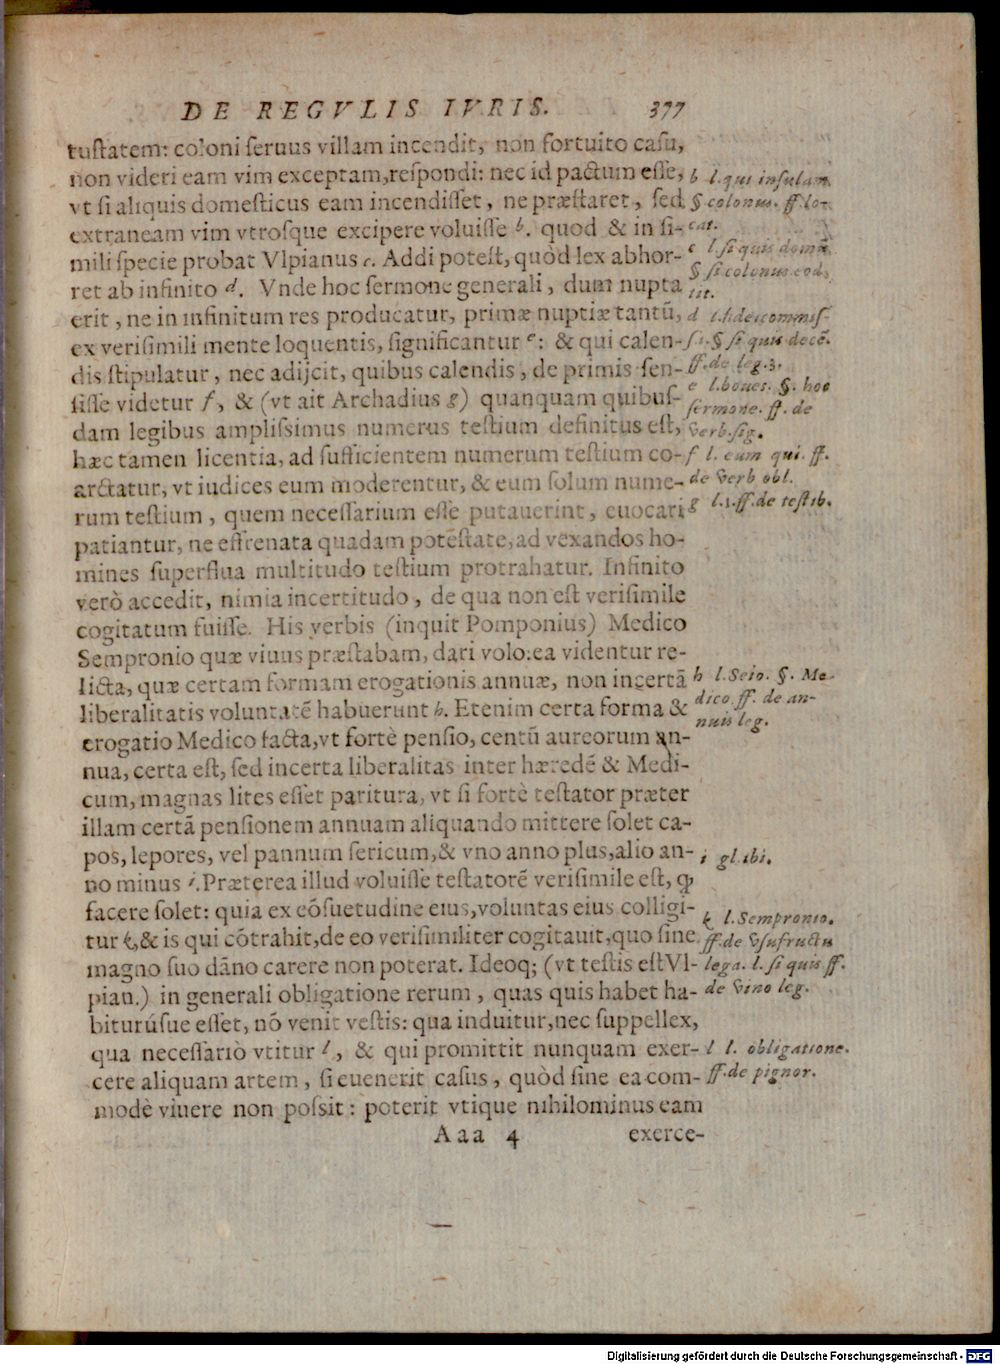 DE REGVLIS IVRIS. 377
tustatem: coloni seruus villam incendit, non fortuito casu,
non videri eam vim exceptam, respondi: nec id pactum esse,
vt si aliquis domesticus eam incendisset, ne præstaret, sed
extraneam vim vtrosque excipere voluisse b. quod & in si-
mili specie probat Vlpianus c. Addi potest, quòd lex abhor-
ret ab infinito d. Vnde hoc sermone generali, dum nupta
erit, ne in infinitum res producatur, primæ nuptiæ tantũ,
ex verisimili mente loquentis, significantur e: & qui calen-
dis stipulatur, nec adijcit, quibus calendis, de primis sen-
sisse videtur f, & (vt ait Archadius g) quanquam quibus-
dam legibus amplissimus numerus testium definitus est,
hæc tamen licentia, ad sufficientem numerum testium co-
arctatur, vt iudices eum moderentur, & eum solum nume-
rum testium, quem necessarium esse putauerint, euocari
patiantur, ne effrenata quadam potestate, ad vexandos ho-
mines superflua multitudo testium protrahatur. Infinito
verò accedit, nimia incertitudo, de qua non est verisimile
cogitatum fuisse. His verbis (inquit Pomponius) Medico
Sempronio quæ viuus præstabam, dari volo: ea videntur re-
licta, quæ certam formam erogationis annuæ, non incertã
liberalitatis voluntatẽ habuerunt h. Etenim certa forma &
erogatio Medico facta, vt fortè pensio, centũ aureorum an-
nua, certa est, sed incerta liberalitas inter hæredẽ & Medi-
cum, magnas lites esset paritura, vt si fortè testator præter
illam certã pensionem annuam aliquando mittere solet ca-
pos, lepores, vel pannum sericum, & vno anno plus, alio an-
no minus i. Præterea illud voluisse testatorẽ verisimile est, ꝙ
facere solet: quia ex cõsuetudine eius, voluntas eius colligi-
tur k, & is qui cõtrahit, de eo verisimiliter cogitauit, quo sine
magno suo dãno carere non poterat. Ideoq; (vt testis est Vl-
pian.) in generali obligatione rerum, quas quis habet ha-
biturúsue esset, nõ venit vestis: qua induitur, nec suppellex,
qua necessariò vtitur l, & qui promittit nunquam exer-
cere aliquam artem, si euenerit casus, quòd sine ea com-
modè viuere non possit: poterit vtique nihilominus eam
Aaa 4 exerce-
b l. qui insulam.
§ colonus. ff. lo-
cat.
c l. si quis domũ.
§ si colonus. eod.
tit.
d l. fideicommis-
sa. § si quis decẽ.
ff. de leg. 3.
e l. boues. §. hoc
sermone. ff. de
verb. sig.
f l. eum qui. ff.
de verb obl.
g l. 1. ff. de testib.
h l. Seio. §. Me-
dico ff. de an-
nuis leg.
i gl. ibi.
k l. Sempronio.
ff. de vsufructu
lega. l. si quis ff.
de vino leg.
l l. obligatione.
ff. de pignor.
Digitalisierung gefördert durch die Deutsche Forschungsgemeinschaft - DFG